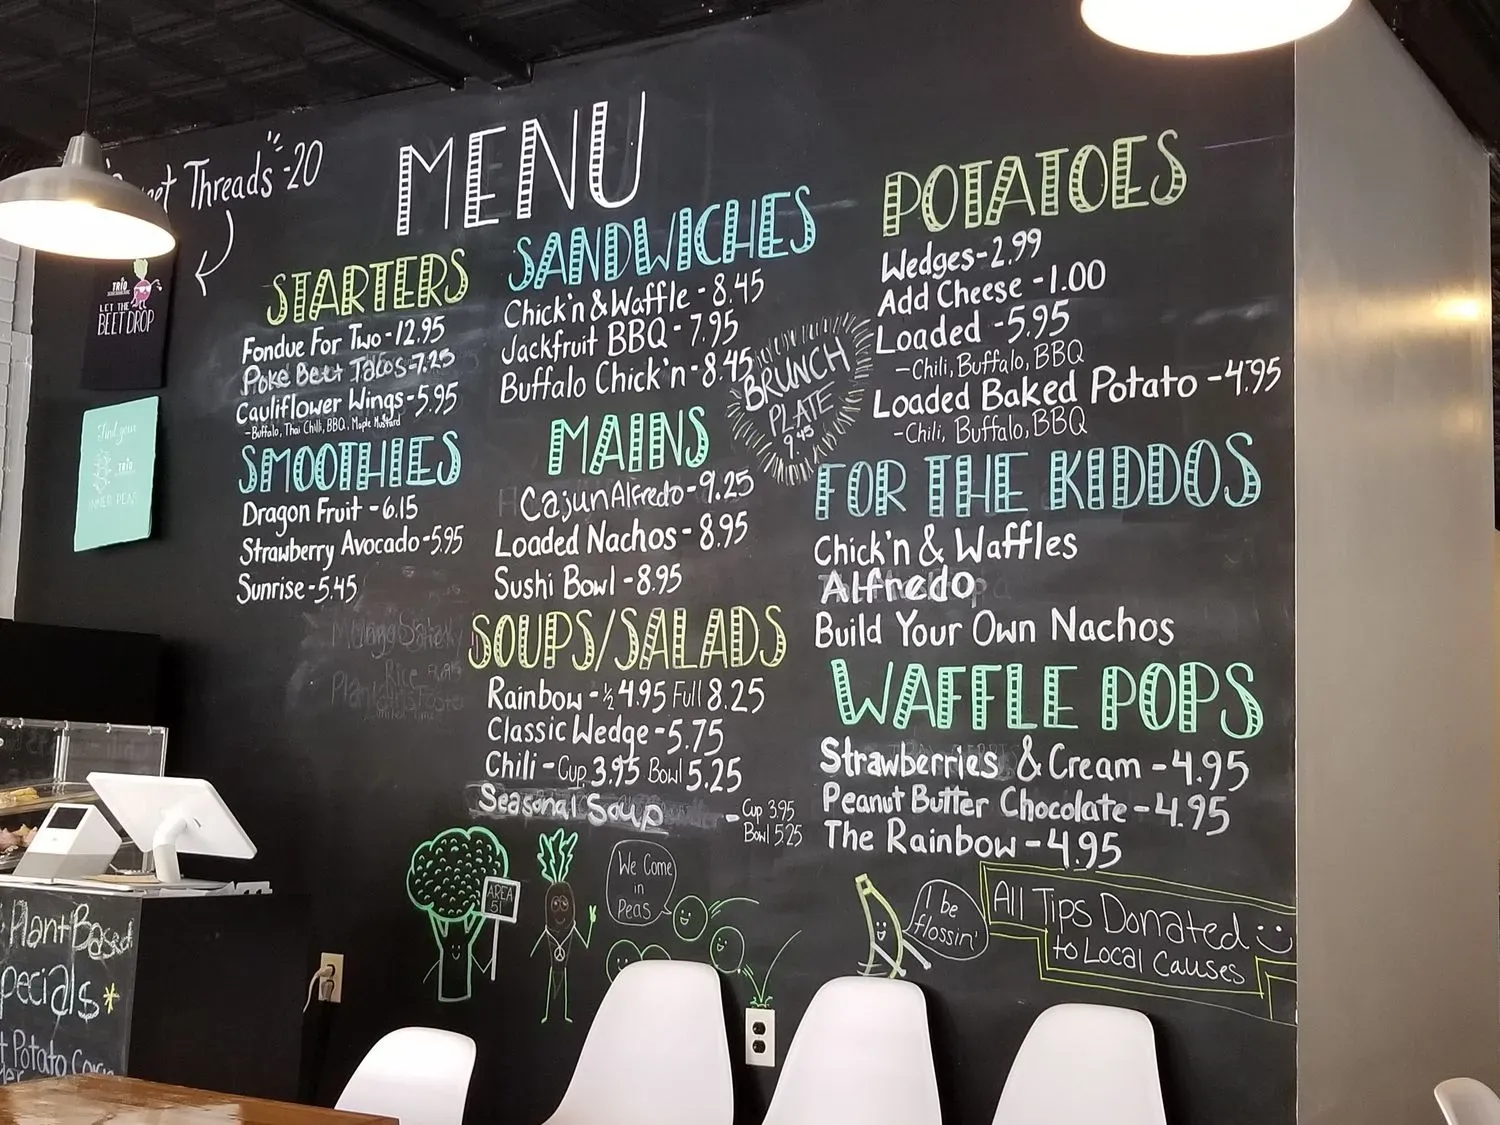 Threads" -20
MENU
TRIO
LET THE
BEET DROP
Find your
TRIO
INNER PEAS
STARTERS
Fondue For Two - 12.95
Poke Beet Tacos - 7.25
Cauliflower Wings - 5.95
- Buffalo, Thai Chili, BBQ, Maple Mustard
SMOOTHIES
Dragon Fruit - 6.15
Strawberry Avocado - 5.95
Sunrise - 5.45
SANDWICHES
Chick'n & Waffle - 8.45
Jackfruit BBQ - 7.95
Buffalo Chick'n - 8.45
BRUNCH
PLATE
9.45
MAINS
Cajun Alfredo - 9.25
Loaded Nachos - 8.95
Sushi Bowl - 8.95
SOUPS/SALADS
Rainbow - ½ 4.95 Full 8.25
Classic Wedge - 5.75
Chili - Cup 3.95 Bowl 5.25
Seasonal Soup - Cup 3.95
Bowl 5.25
POTATOES
Wedges - 2.99
Add Cheese - 1.00
Loaded - 5.95
- Chili, Buffalo, BBQ
Loaded Baked Potato - 4.95
- Chili, Buffalo, BBQ
FOR THE KIDDOS
Chick'n & Waffles
Alfredo
Build Your Own Nachos
WAFFLE POPS
Strawberries & Cream - 4.95
Peanut Butter Chocolate - 4.95
The Rainbow - 4.95
AREA
51
We Come
in
Peas
I be
flossin'
All Tips Donated
to Local Causes
Plant Based
Specials*
Potato Corn